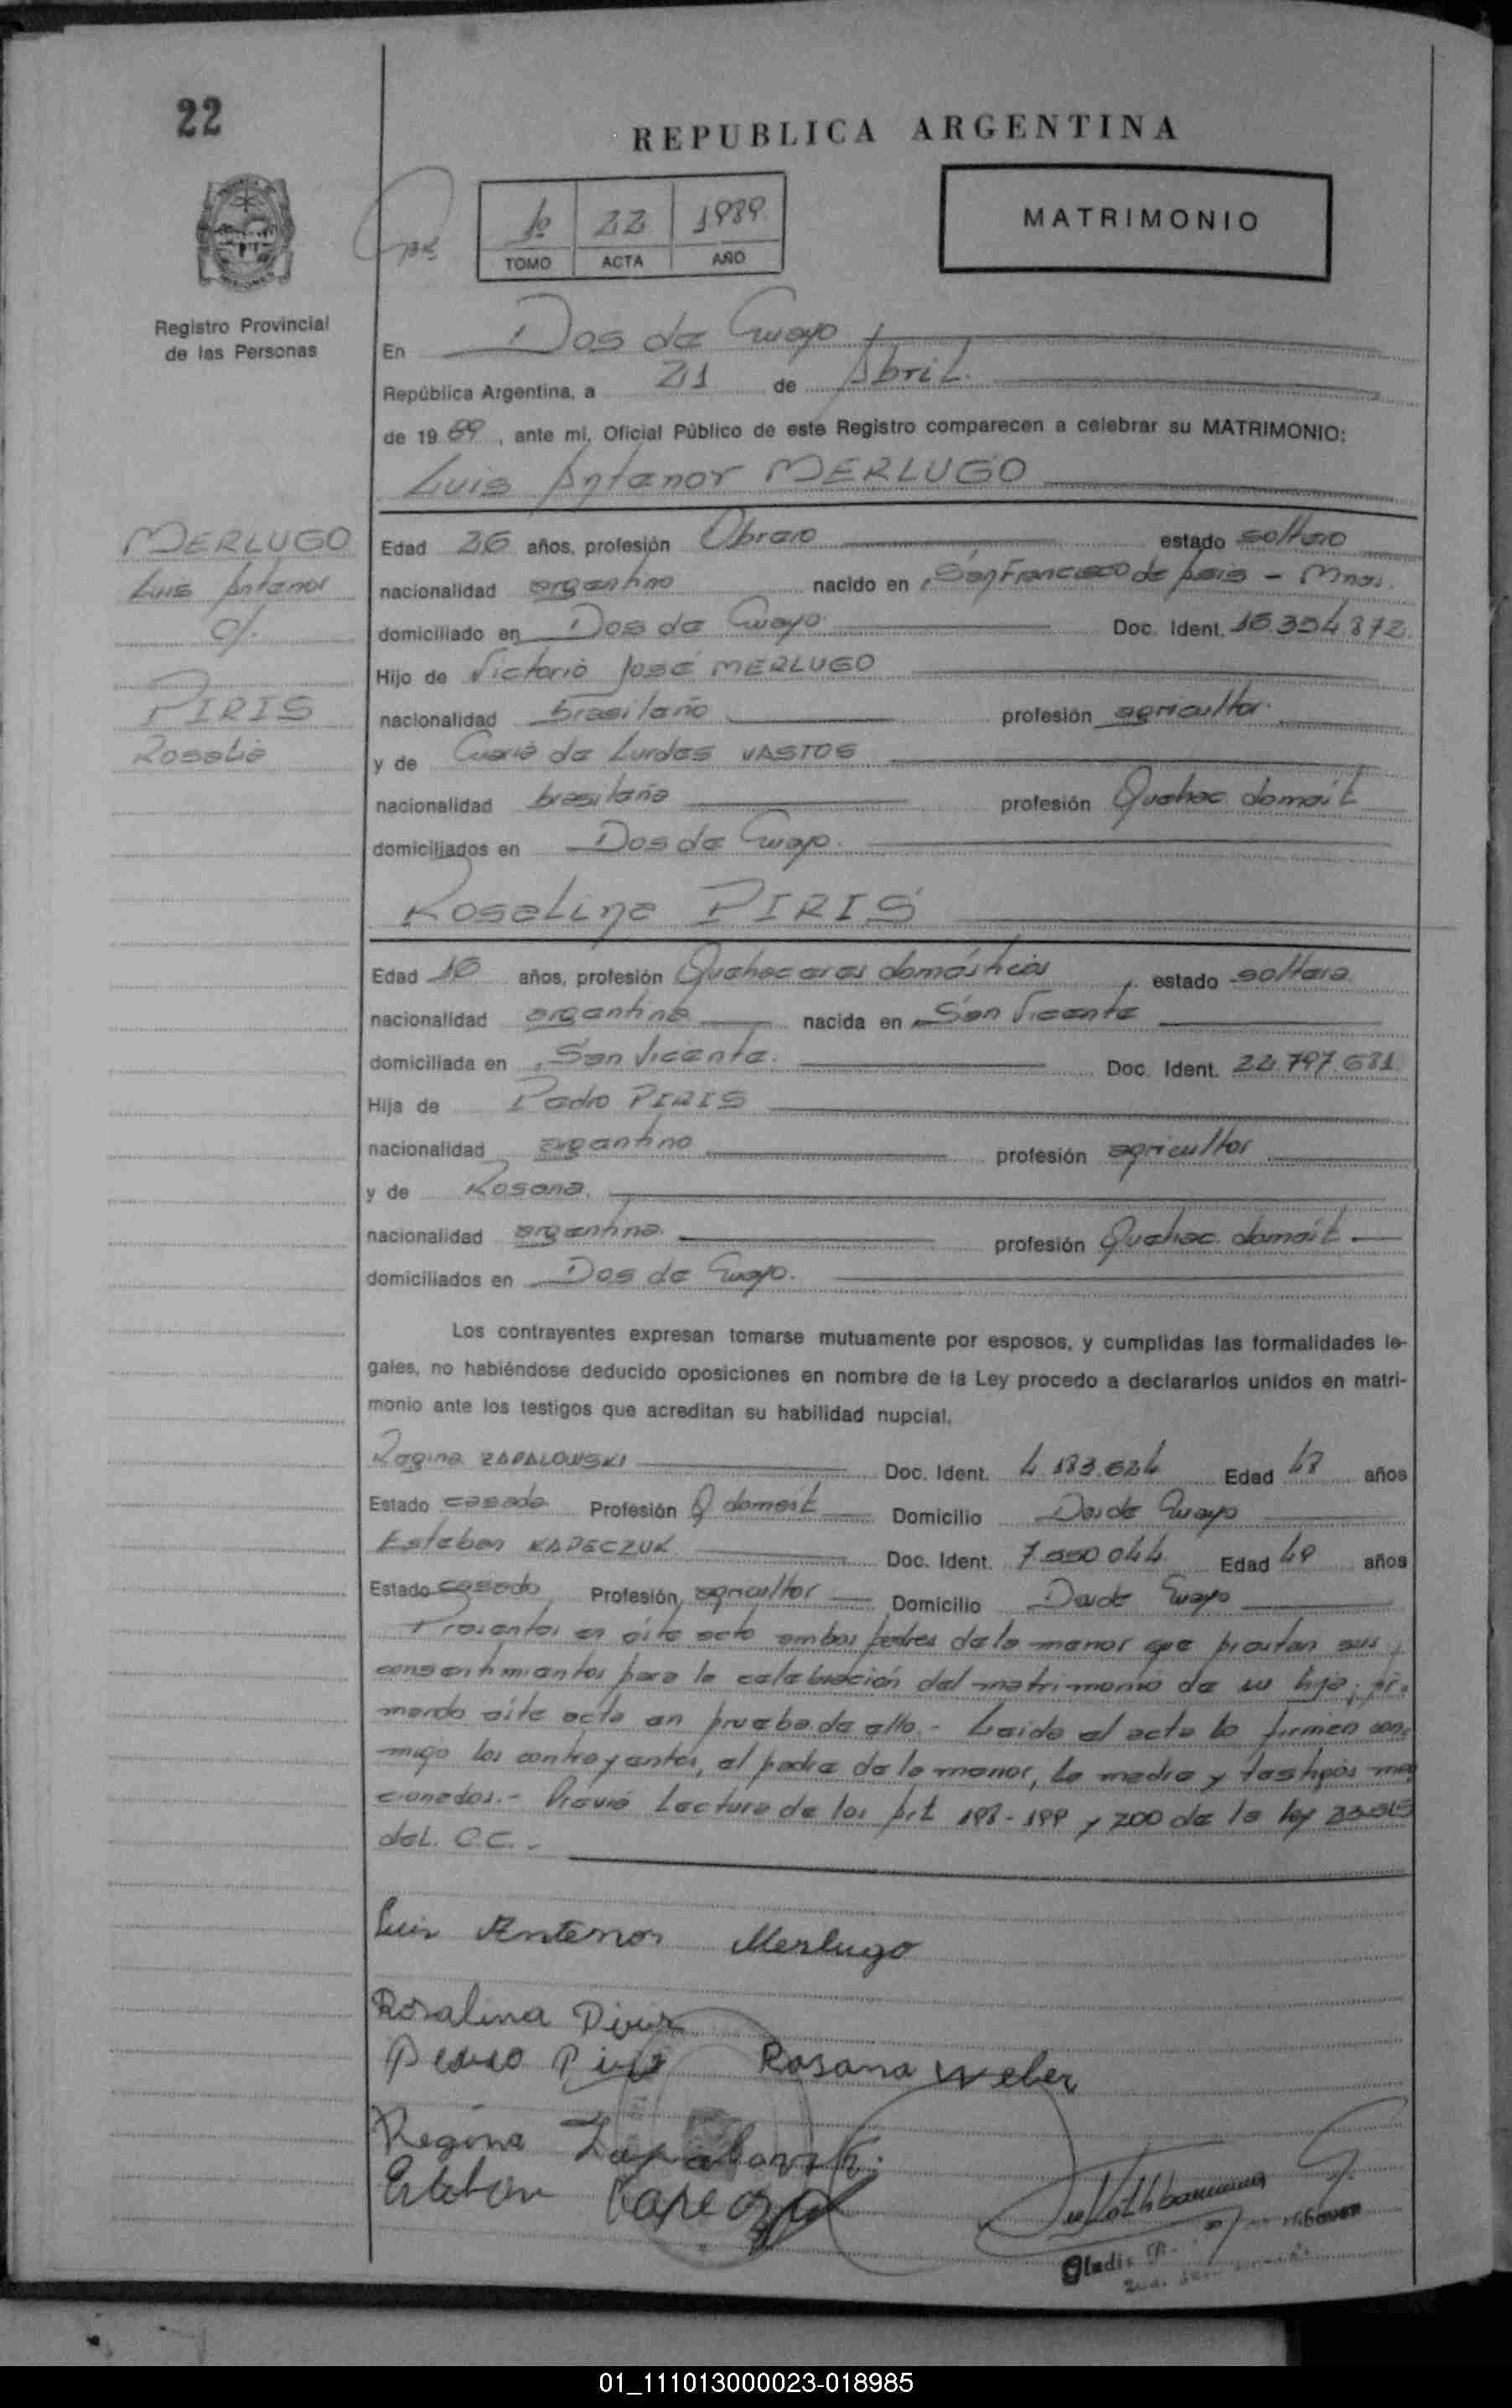 22
REPUBLICA ARGENTINA
1º 22 1989
TOMO ACTA AÑO
MATRIMONIO
Registro Provincial
de las Personas
En Dos de Mayo
República Argentina, a 21 de Abril.
de 1989, ante mí, Oficial Público de este Registro comparecen a celebrar su MATRIMONIO:
Luis Antenor MERLUGO
MERLUGO
Luis Antenor
c/.
PIRIS
Rosali
Edad 26 años, profesión Obrero estado soltero
nacionalidad argentino nacido en San Francisco de Asis - Mnes.
domiciliado en Dos de Mayo Doc. Ident. 16.354.872.
Hijo de Victorio José MERLUGO
nacionalidad brasileño profesión agricultor.
y de Maria de Lurdes VASTOS
nacionalidad brasileña profesión Quehac domést
domiciliados en Dos de Mayo.
Rosalina PIRIS
Edad 16 años, profesión Quehaceres domésticos, estado soltera.
nacionalidad argentina nacida en San Vicente
domiciliada en San Vicente. Doc. Ident. 22.797.681
Hija de Pedro PIRIS
nacionalidad argentino profesión agricultor
y de Rosana.
nacionalidad argentina. profesión Quehac. domést
domiciliados en Dos de Mayo.
Los contrayentes expresan tomarse mutuamente por esposos, y cumplidas las formalidades le-
gales, no habiéndose deducido oposiciones en nombre de la Ley procedo a declararlos unidos en matri-
monio ante los testigos que acreditan su habilidad nupcial.
Regina ZAPALOWSKI Doc. Ident. 4.183.684 Edad 48 años
Estado casada Profesión Q domést Domicilio Dos de Mayo
Esteban KAPECZUK Doc. Ident. 7.550.044 Edad 49 años
Estado casado Profesión agricultor Domicilio Dos de Mayo
Presentes en éste acto ambos padres de la menor que prestan sus
consentimientos para la celebración del matrimonio de su hija; fir-
mando éste acta en prueba de ello.- Leida el acta la firman con-
migo los contrayentes, el padre de la menor, la madre y testigos men
cionados.- Previo Lectura de los Art 198-199 y 200 de la ley 23.515
del C.C.-
Luis Antenor Merlugo
Rosalina Piris
Pedro Piris Rosana Weber
Regina Zapalowski
Esteban Kapeczuk
Gladis
01_111013000023-018985